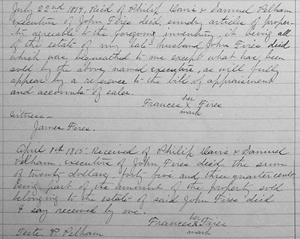 July 22nd 1814, Recd of Philip Ware & Samuel Pelham
Executors of John Fires decd, sundry articles of proper-
ty agreeable to the foregoing inventory, it being all
of the estate of my late husband John Fires decd
which was bequeathed to me except what has been
sold by the above named executors, as will fully
appear by a reference to the bill of appraisement
and accounts of sales.
her
Frances X Fires
mark
Witness
James Fires.
April 1st 1815. Received of Philip Ware & Samuel
Pelham, executors of John Fires decd the sum
of twenty dollars, forty five and three quarter cents
being part of the amount of the property sold
belonging to the estate of said John Fires decd
I say received by me.
her
Frances X Fires
mark
Teste P Pelham